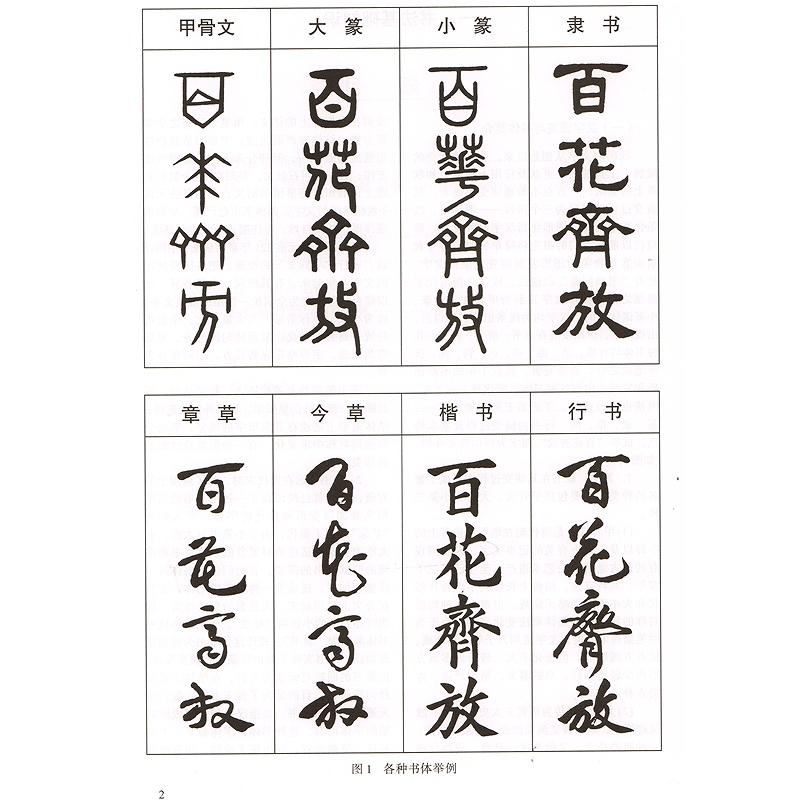 甲骨文 大篆 小篆 隶书
百 百 百 百
花 花 華 花
齊 齊 齊 齊
方 放 放 放
章草 今草 楷书 行书
百 百 百 百
花 花 花 花
齊 齊 齊 齊
放 放 放 放
图1 各种书体举例
2